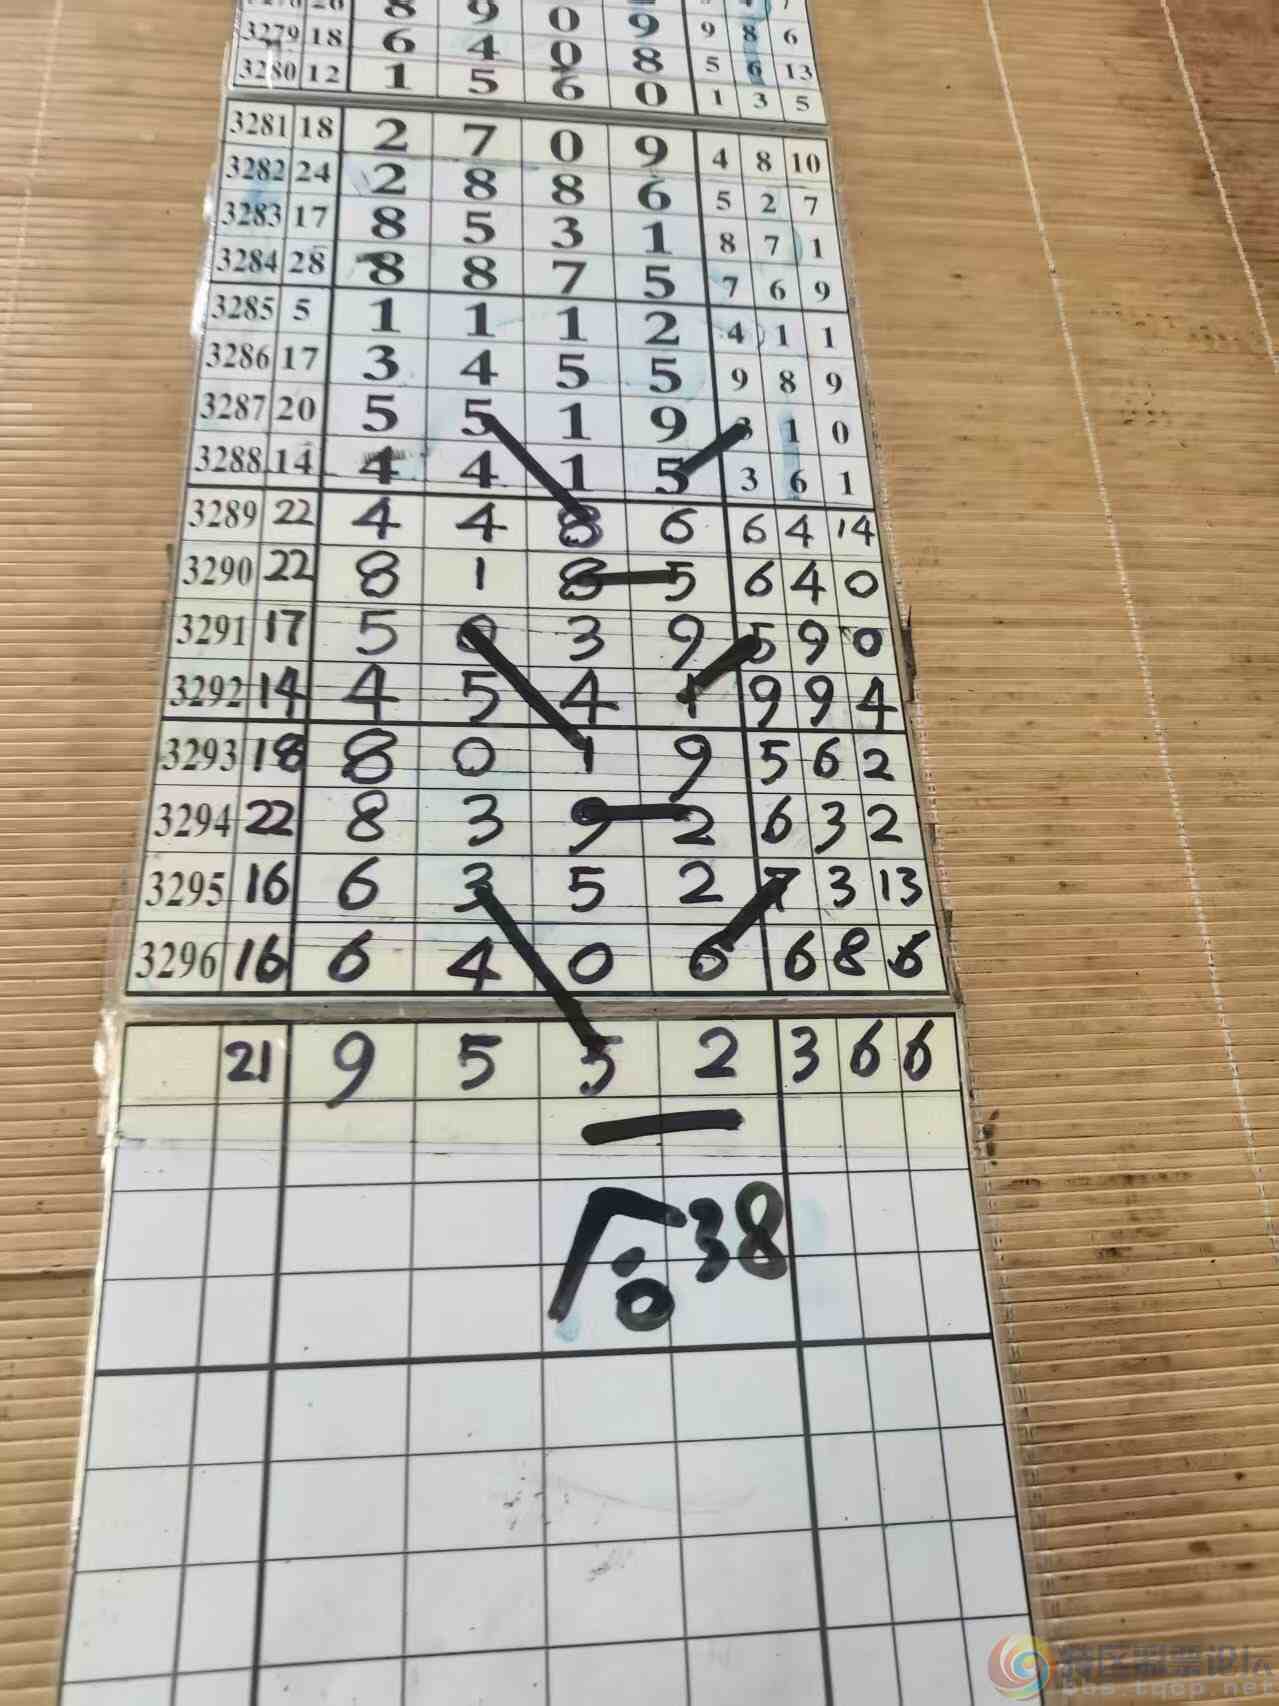 8 9 0 9 7
3279 18 6 4 0 8 9 8 6
3280 12 1 5 6 0 5 6 13
1 3 5
3281 18 2 7 0 9 4 8 10
3282 24 2 8 8 6 5 2 7
3283 17 8 5 3 1 8 7 1
3284 28 8 8 7 5 7 6 9
3285 5 1 1 1 2 4 1 1
3286 17 3 4 5 5 9 8 9
3287 20 5 5 1 9 3 1 0
3288 14 4 4 1 5 3 6 1
3289 22 4 4 8 6 6 4 14
3290 22 8 1 8 5 6 4 0
3291 17 5 0 3 9 5 9 0
3292 14 4 5 4 1 9 9 4
3293 18 8 0 1 9 5 6 2
3294 22 8 3 9 2 6 3 2
3295 16 6 3 5 2 7 3 13
3296 16 6 4 0 6 6 8 6
21 9 5 5 2 3 6 6
38
bbs.tqcp.net